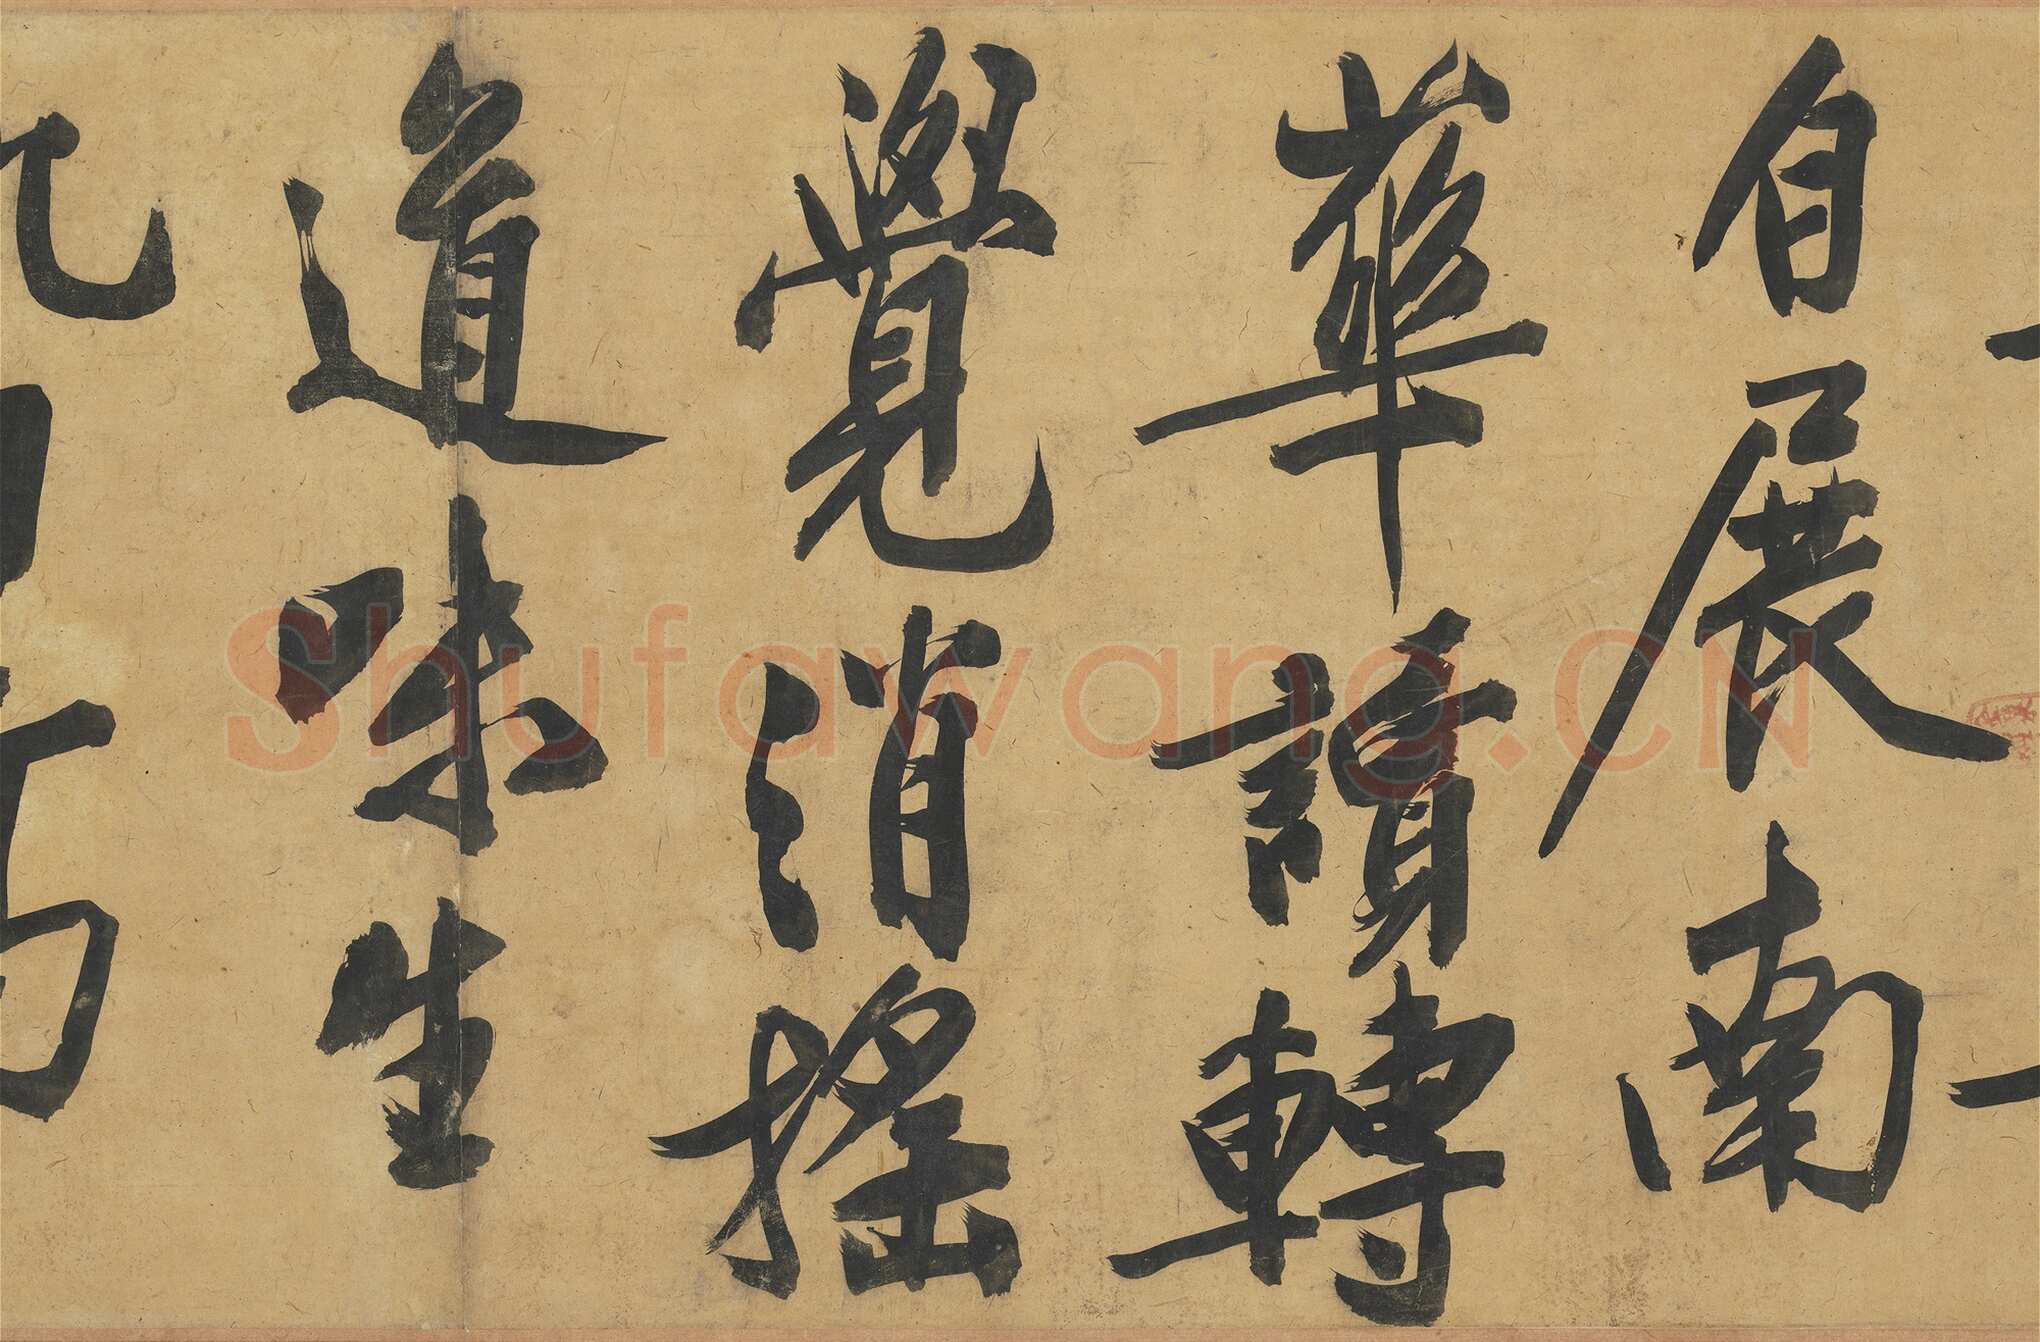 自展南
華讀轉
覺消搖
道味生
Shufawang.CN